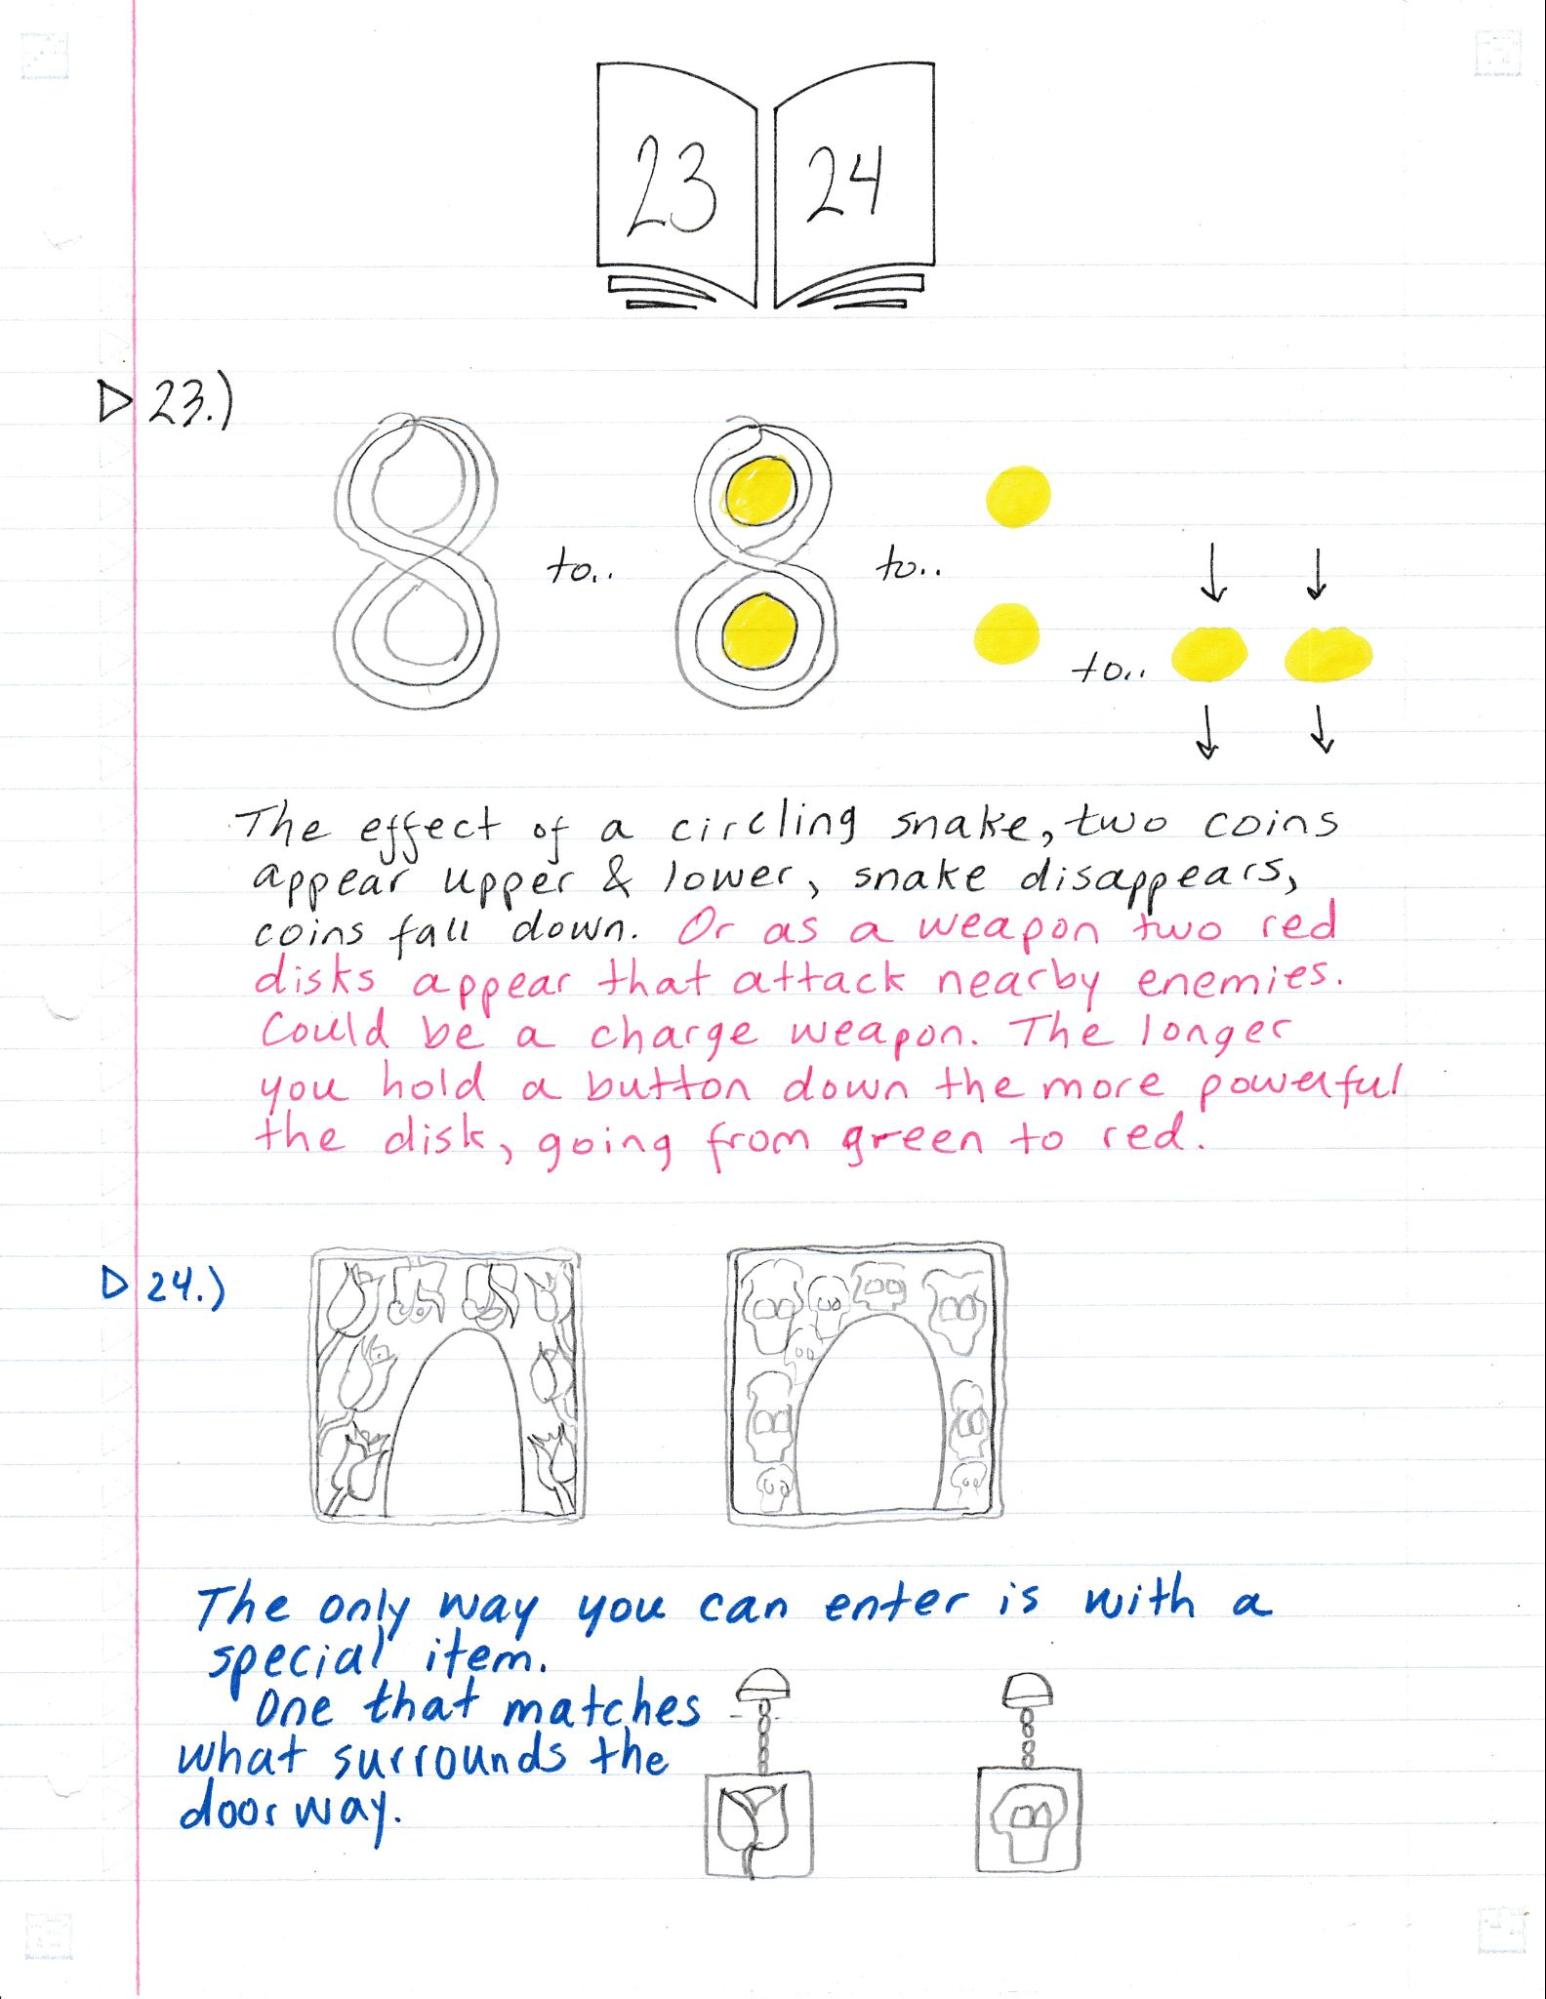 23 24
▷ 23.)
to..
to..
to..
The effect of a circling snake, two coins
appear upper & lower, snake disappears,
coins fall down. Or as a weapon two red
disks appear that attack nearby enemies.
Could be a charge weapon. The longer
you hold a button down the more powerful
the disk, going from green to red.
▷ 24.)
The only way you can enter is with a
special item.
One that matches
what surrounds the
doorway.